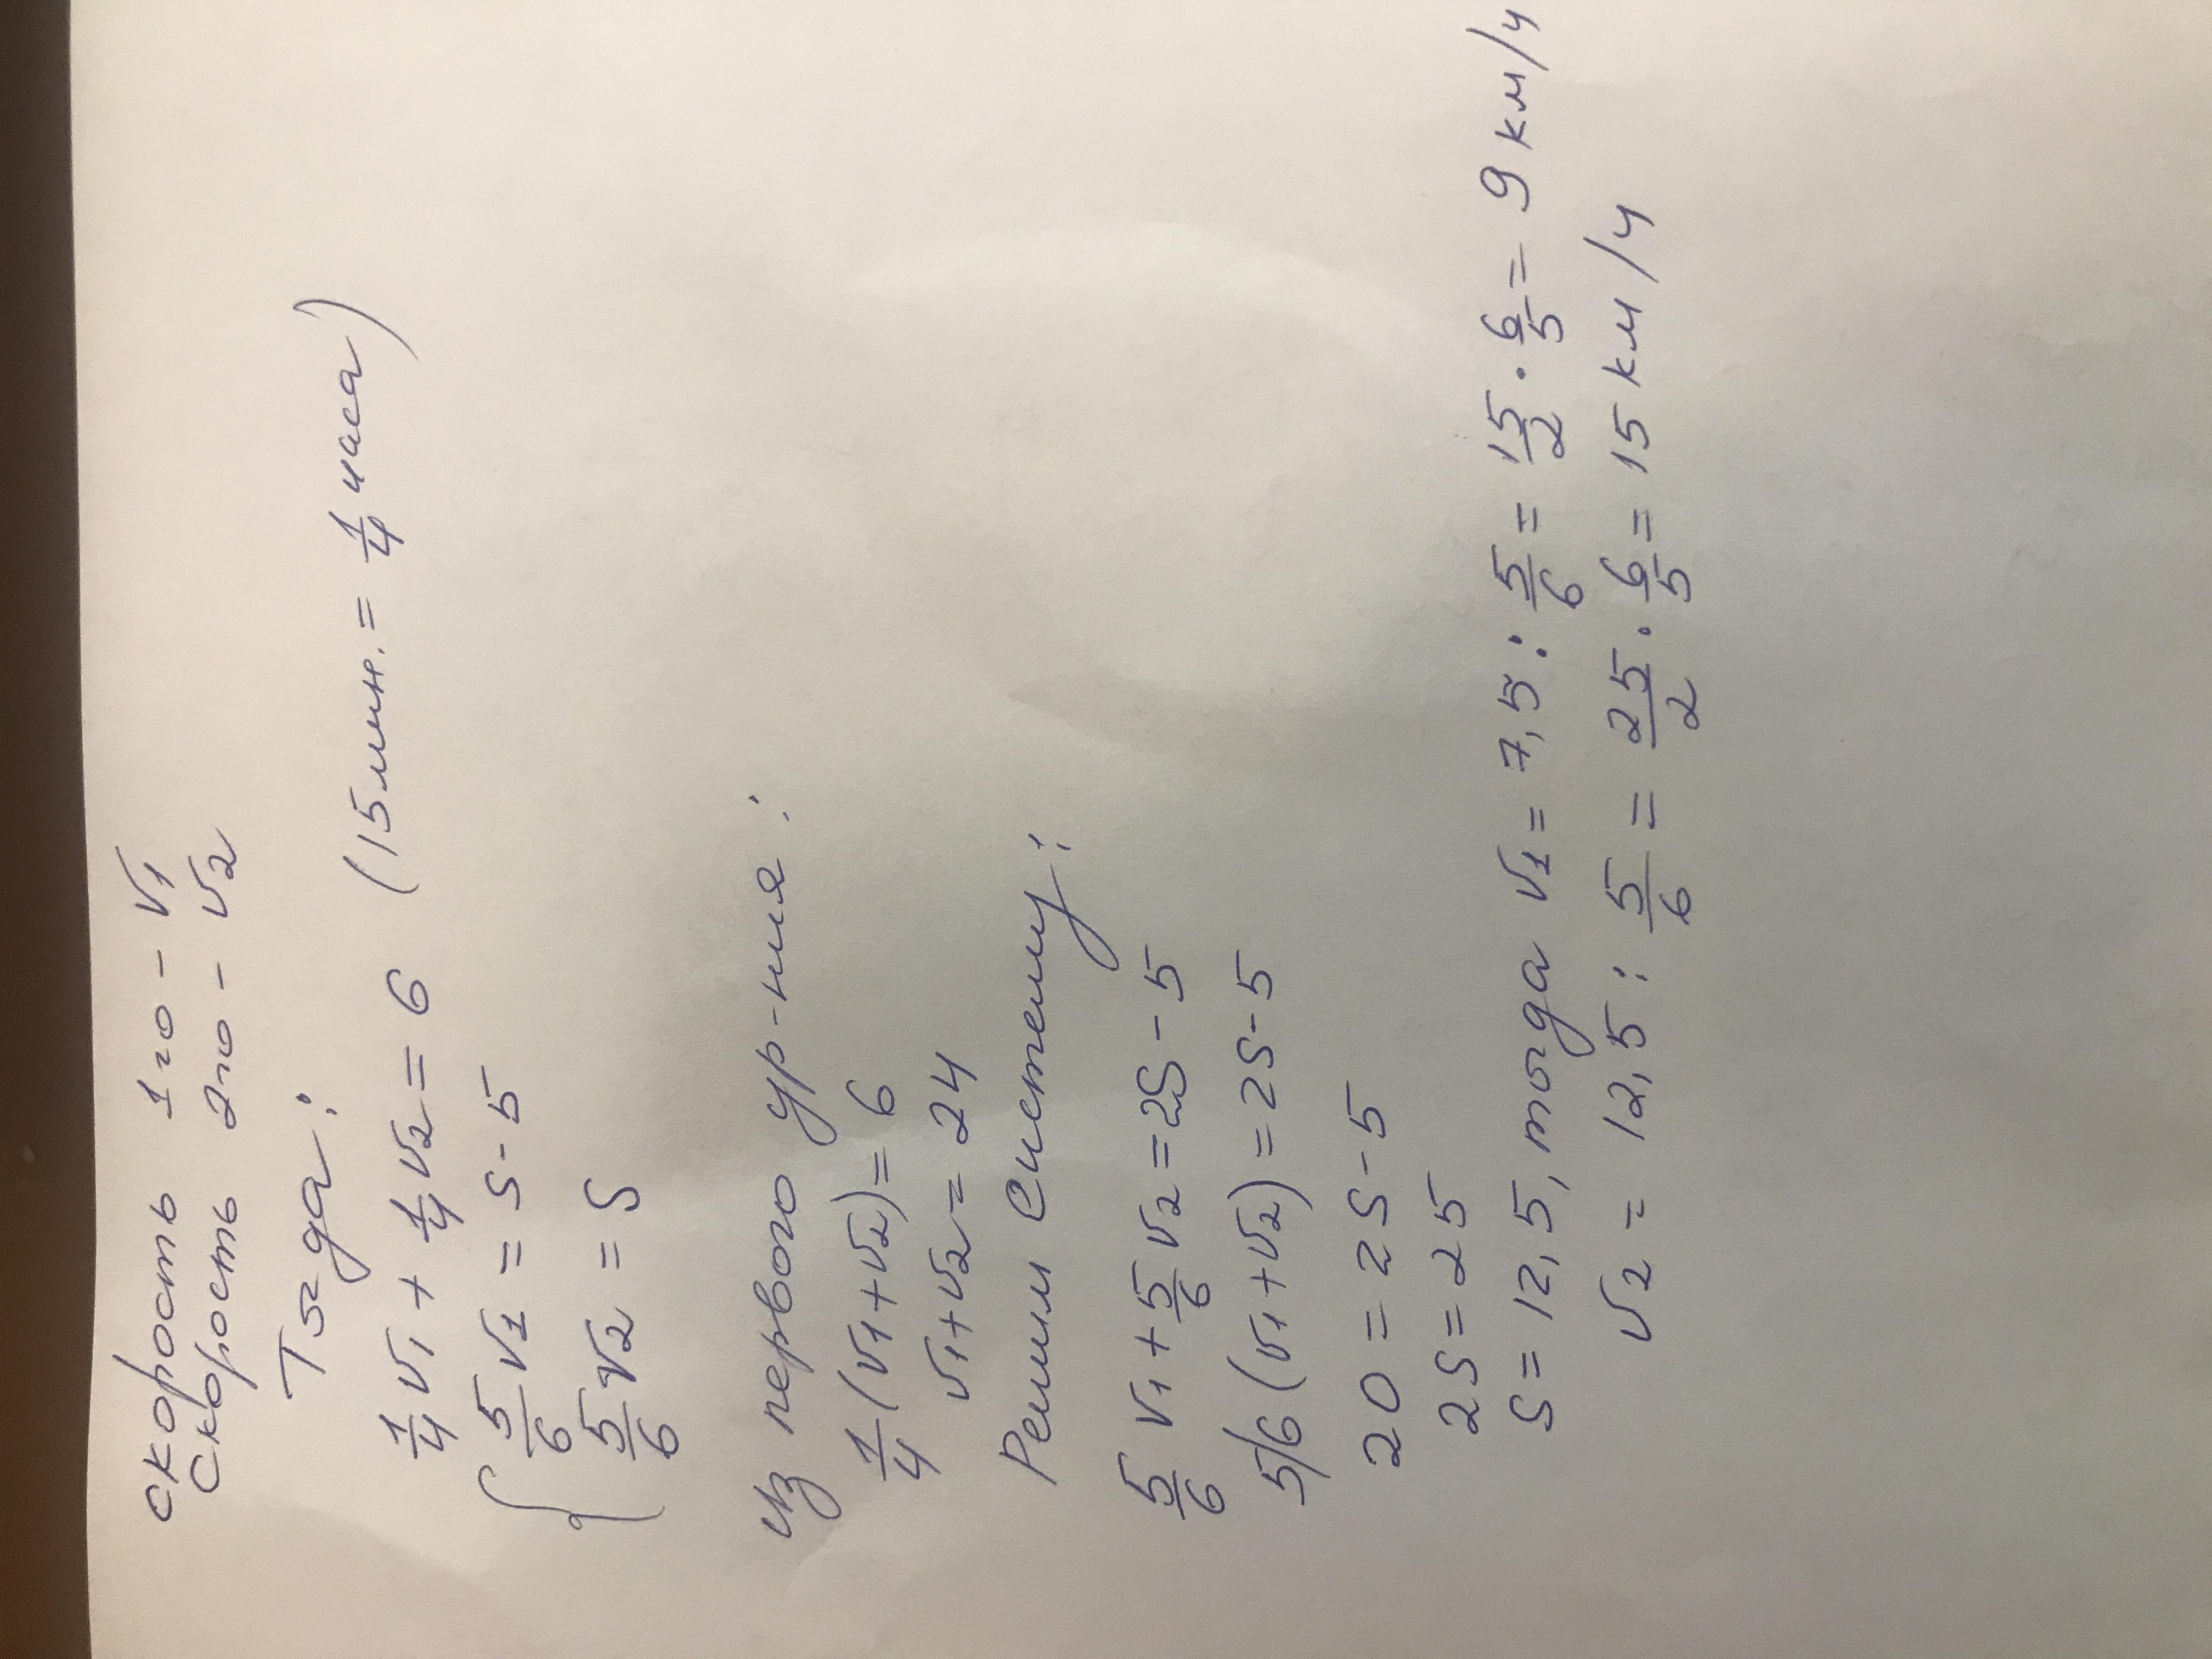 скорость 1го - v1
скорость 2го - v2
Тогда:
1/4 v1 + 1/4 v2 = 6 (15 мин. = 1/4 часа)
5/6 v1 = S - 5
5/6 v2 = S
Из первого ур-ния:
1/4 (v1 + v2) = 6
v1 + v2 = 24
Решим систему:
5/6 v1 + 5/6 v2 = 2S - 5
5/6 (v1 + v2) = 2S - 5
20 = 2S - 5
2S = 25
S = 12,5, тогда v1 = 7,5 : 5/6 = 15/2 · 6/5 = 9 км/ч
v2 = 12,5 : 5/6 = 25/2 · 6/5 = 15 км/ч